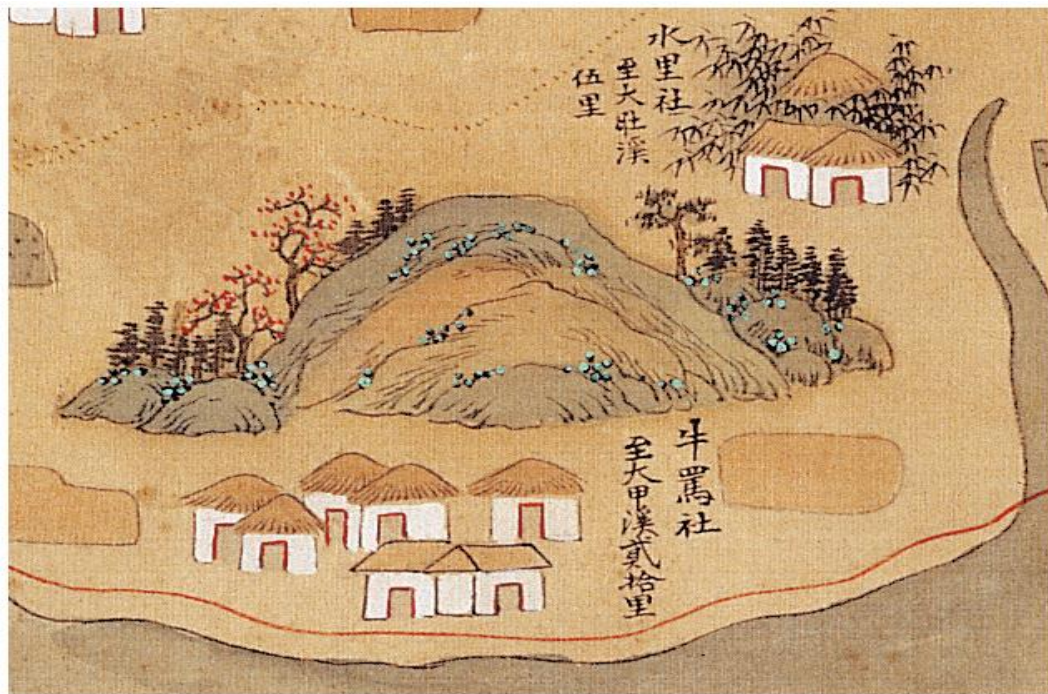 水里社
至大肚溪
伍里
牛罵社
至大甲溪貳拾里